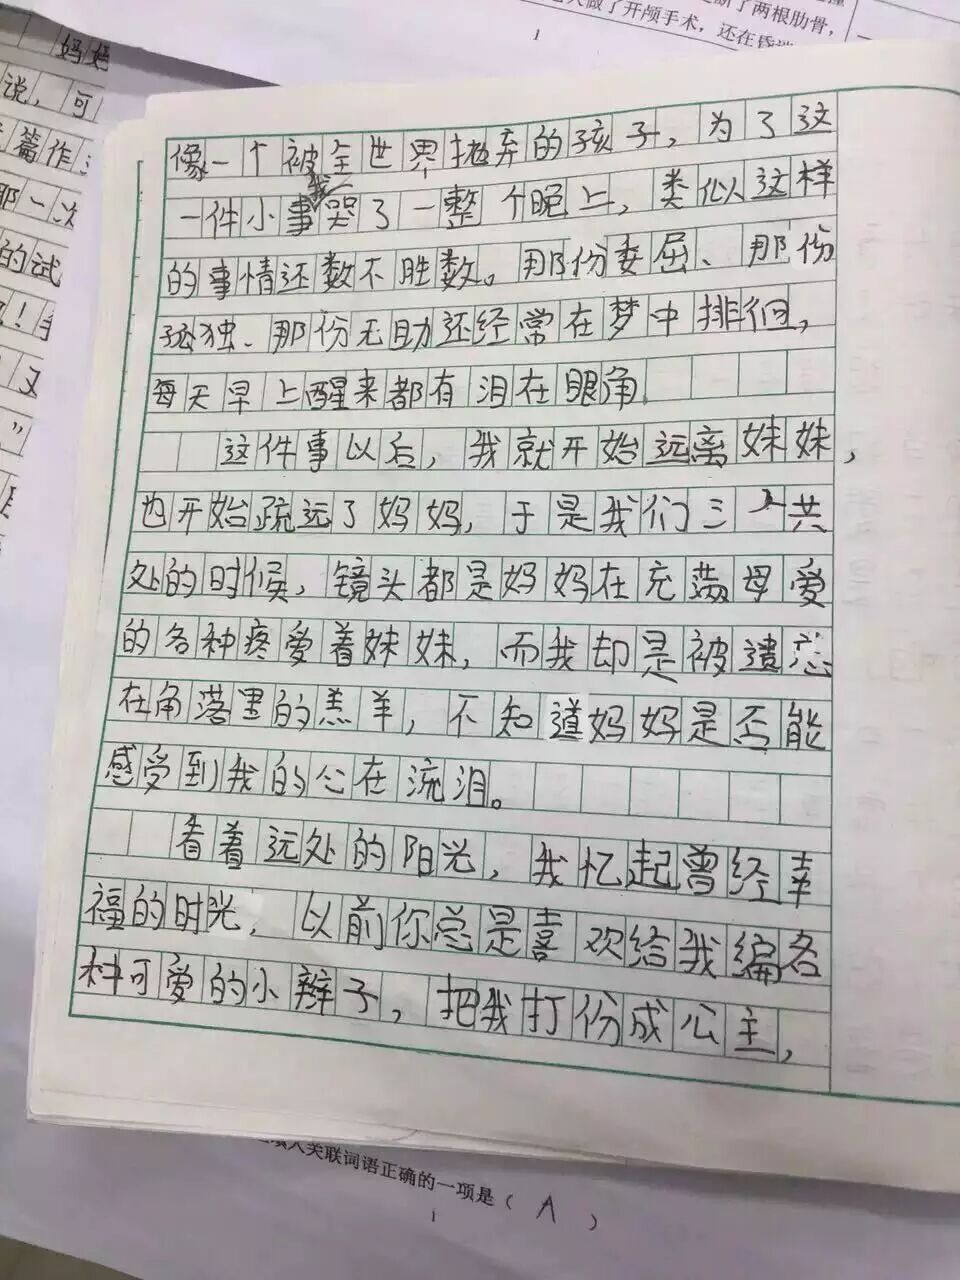 了两根肋骨，
做了开颅手术，还在昏
1
妈妈
说，可
篇作
那一次
的试
又
”
像一个被全世界抛弃的孩子，为了这
一件小事我哭了一整个晚上，类似这样
的事情还数不胜数。那份委屈、那份
孤独、那份无助还经常在梦中排徊，
每天早上醒来都有泪在眼角。
这件事以后，我就开始远离妹妹，
也开始疏远了妈妈，于是我们三个共
处的时候，镜头都是妈妈在充满母爱
的各种疼爱着妹妹，而我却是被遗忘
在角落里的羔羊，不知道妈妈是否能
感受到我的心在流泪。
看着远处的阳光，我忆起曾经幸
福的时光，以前你总是喜欢给我编各
种可爱的小辫子，把我打份成公主，
入关联词语正确的一项是（ A ）
1